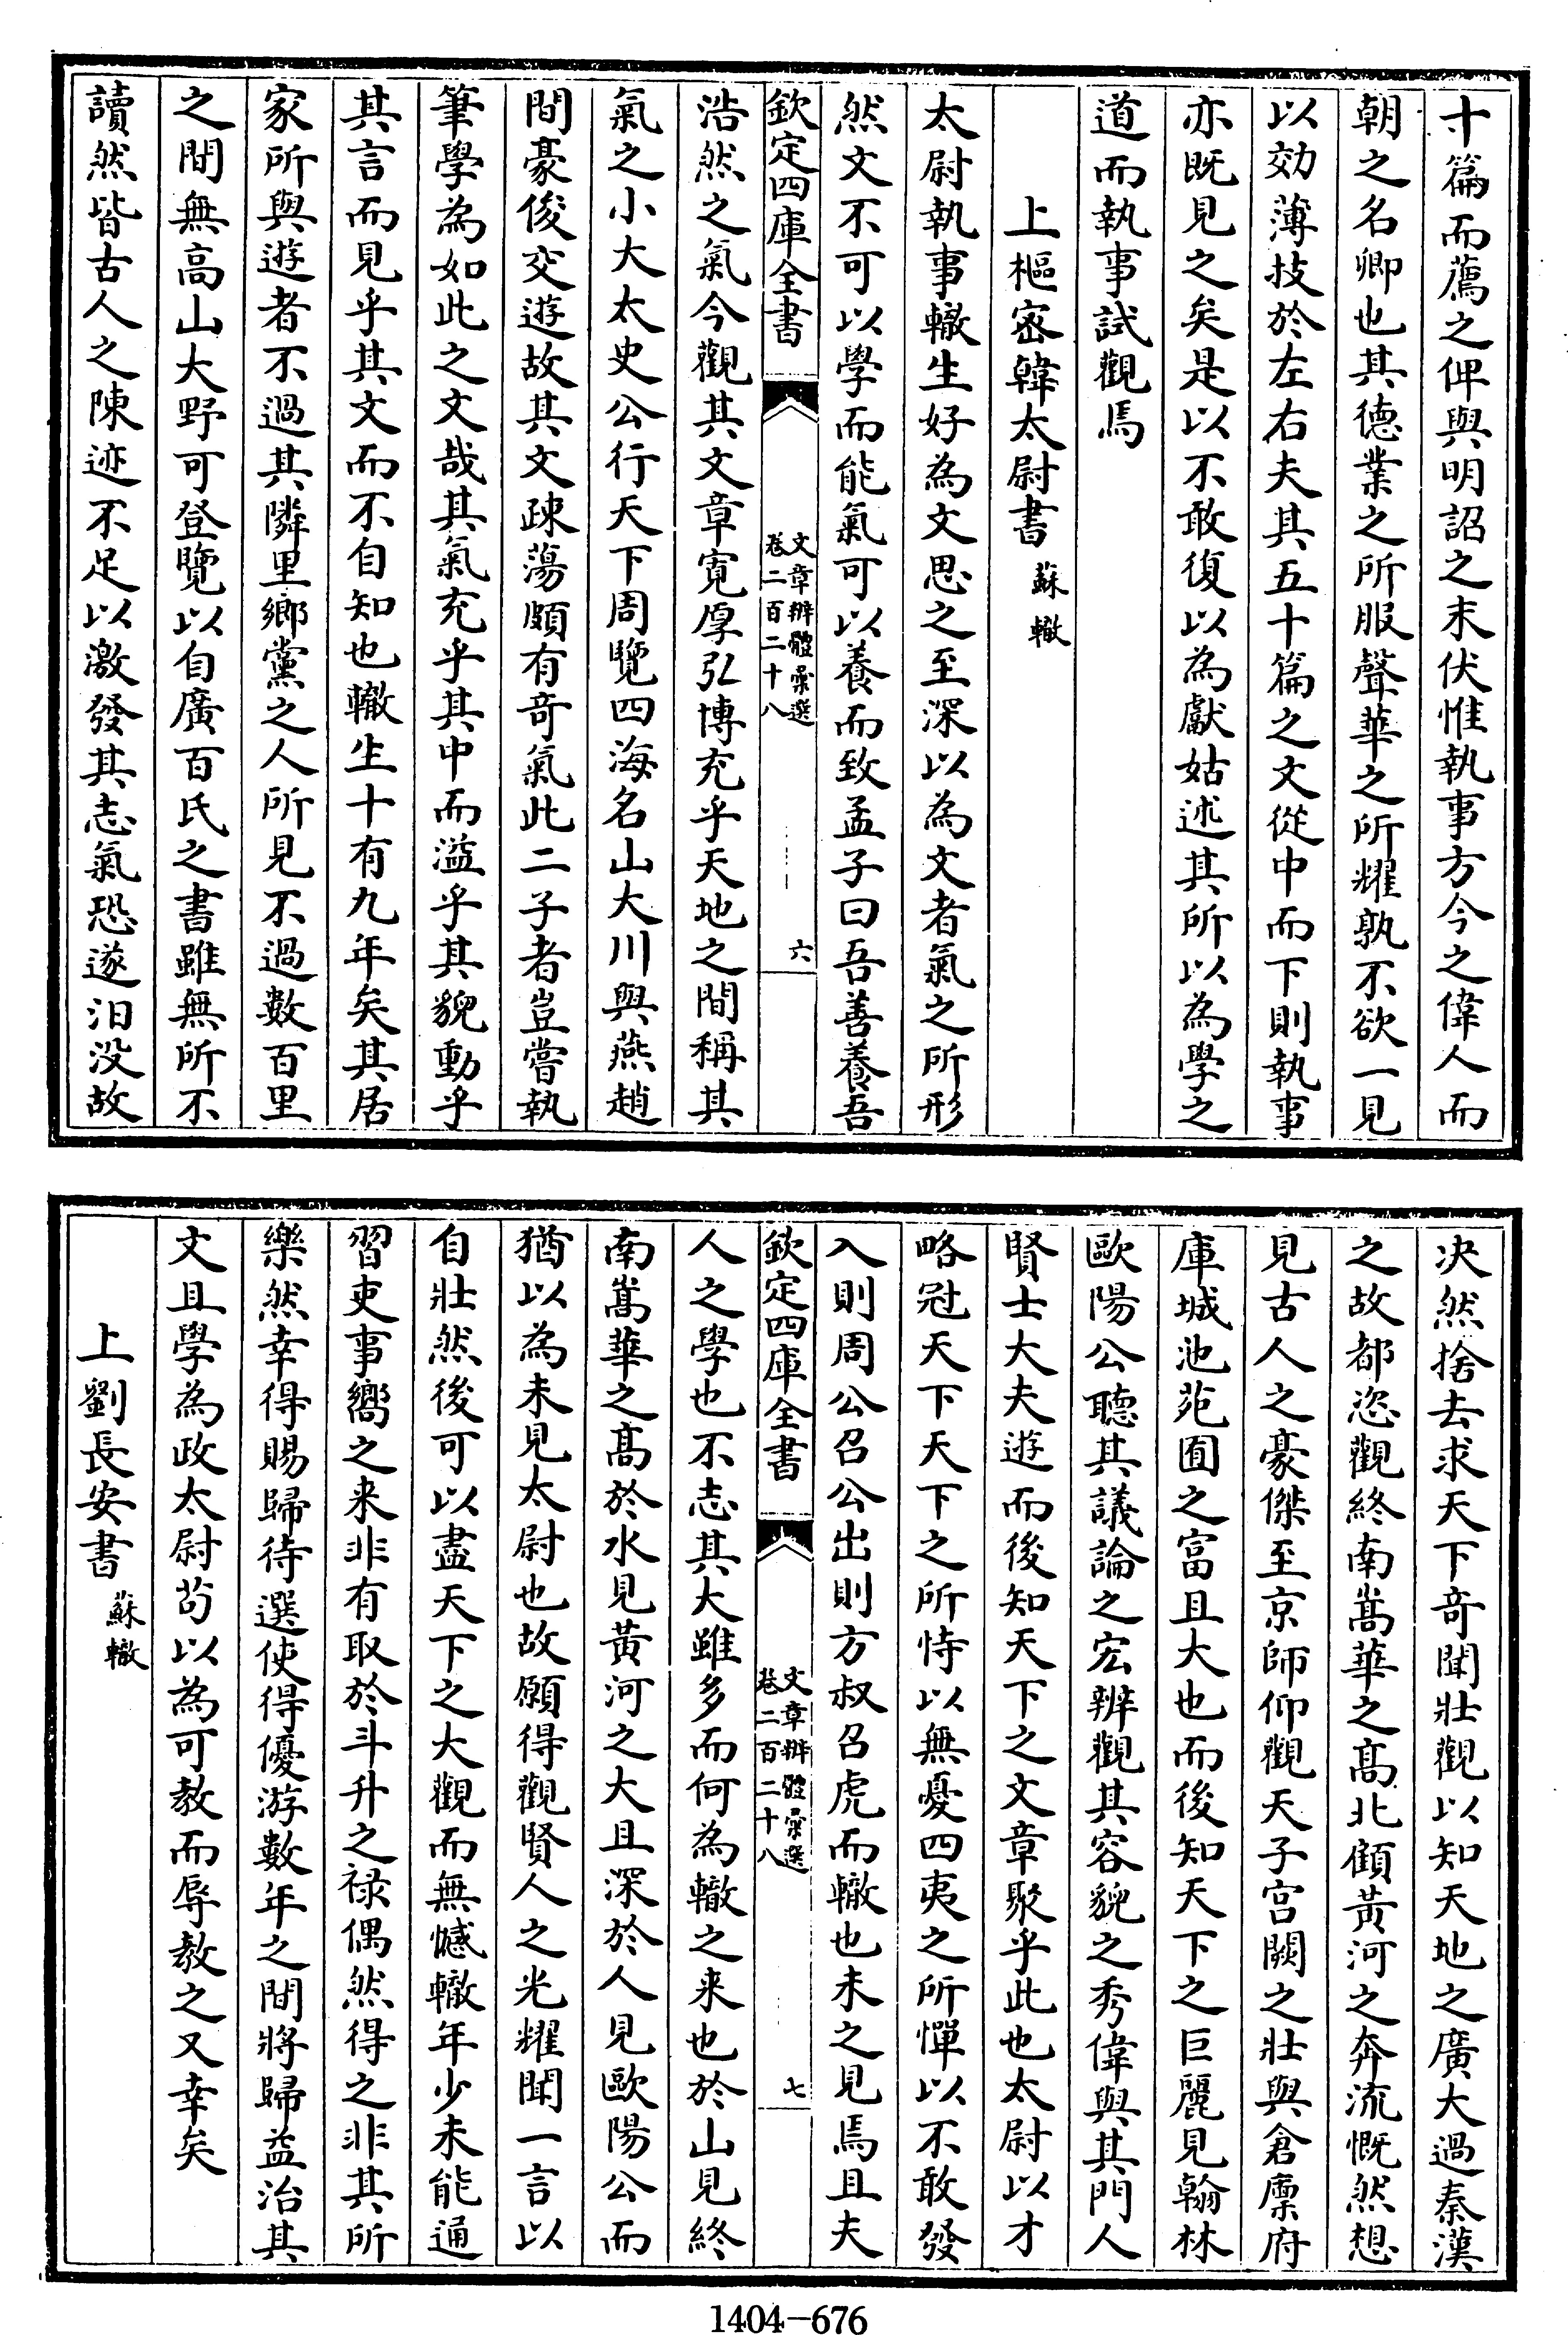 十篇而薦之俾與明詔之末伏惟執事方今之偉人而
朝之名卿也其德業之所服聲華之所耀孰不欲一見
以効薄技於左右夫其五十篇之文從中而下則執事
亦既見之矣是以不敢復以為獻姑述其所以為學之
道而執事試觀焉
上樞密韓太尉書 蘇轍
太尉執事轍生好為文思之至深以為文者氣之所形
然文不可以學而能氣可以養而致孟子曰吾善養吾
欽定四庫全書 文章辨體彙選 卷二百二十八 六
浩然之氣今觀其文章寛厚弘博充乎天地之間稱其
氣之小大太史公行天下周覽四海名山大川與燕趙
間豪俊交遊故其文疎蕩頗有竒氣此二子者豈嘗執
筆學為如此之文哉其氣充乎其中而溢乎其貌動乎
其言而見乎其文而不自知也轍生十有九年矣其居
家所與遊者不過其隣里鄉黨之人所見不過數百里
之間無高山大野可登覽以自廣百氏之書雖無所不
讀然皆古人之陳迹不足以激發其志氣恐遂汨没故
决然捨去求天下竒聞壯觀以知天地之廣大過秦漢
之故都恣觀終南嵩華之髙北顧黄河之奔流慨然想
見古人之豪傑至京師仰觀天子宫闕之壯與倉廩府
庫城池苑囿之富且大也而後知天下之巨麗見翰林
歐陽公聽其議論之宏辨觀其容貌之秀偉與其門人
賢士大夫遊而後知天下之文章聚乎此也太尉以才
略冠天下天下之所恃以無憂四夷之所憚以不敢發
入則周公召公出則方叔召虎而轍也未之見焉且夫
欽定四庫全書 文章辨體彙選 卷二百二十八 七
人之學也不志其大雖多而何為轍之来也於山見終
南嵩華之髙於水見黄河之大且深於人見歐陽公而
猶以為未見太尉也故願得觀賢人之光耀聞一言以
自壯然後可以盡天下之大觀而無憾轍年少未能通
習吏事嚮之来非有取於斗升之禄偶然得之非其所
樂然幸得賜歸待選使得優游數年之間將歸益治其
文且學為政太尉苟以為可教而辱教之又幸矣
上劉長安書 蘇轍
1404—676